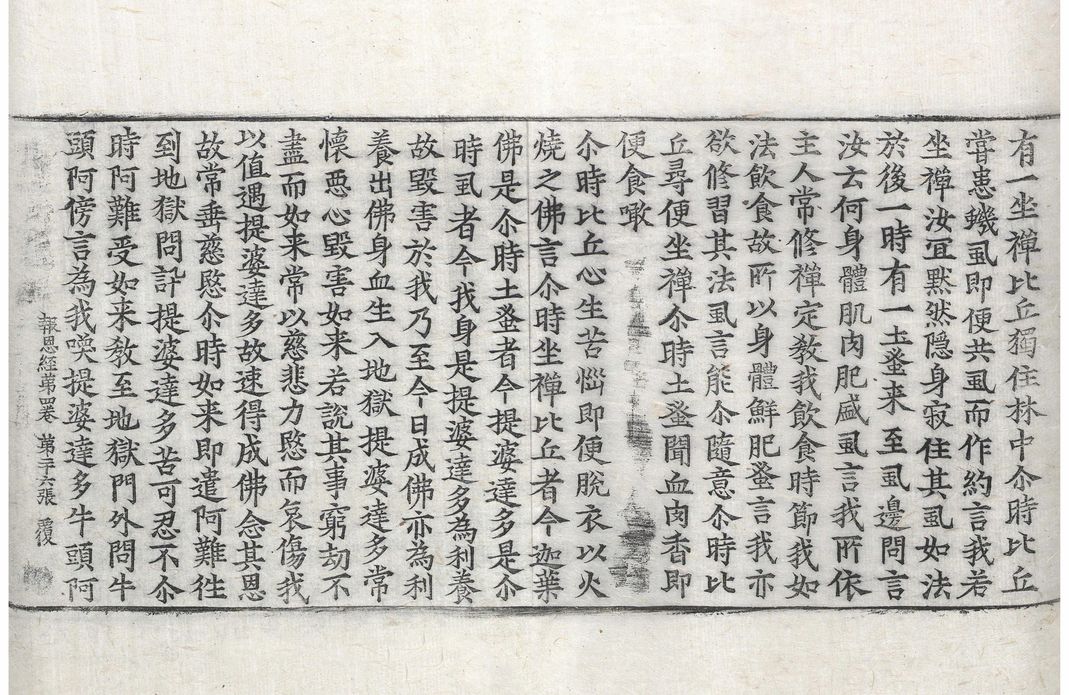 有一坐禪比丘獨住林中尒時比丘
甞患蟣虱即便共虱而作約言我若
坐禪汝冝黙然隠身寂住其虱如法
於後一時有一土蚤来至虱邊問言
汝云何身體肌肉肥盛虱言我所依
主人常修禪定教我飲食時節我如
法飲食故所以身體鮮肥蚤言我亦
欲修習其法虱言能尒隨意尒時比
丘尋便坐禪尒時土蚤聞血肉香即
便食噉
尒時比丘心生苦惱即便脫衣以火
燒之佛言尒時坐禪比丘者今迦葉
佛是尒時土蚤者今提婆達多是尒
時虱者今我身是提婆達多為利養
故毀害於我乃至今日成佛亦為利
養出佛身血生入地獄提婆達多常
懷悪心毀害如来若說其事窮劫不
盡而如来常以慈悲力愍而哀傷我
以值遇提婆達多故速得成佛念其恩
故常垂慈愍尒時如来即遣阿難徃
到地獄問訊提婆達多苦可忍不尒
時阿難受如来教至地獄門外問牛
頭阿傍言為我喚提婆達多牛頭阿
報恩經第四卷 第二十六張 覆